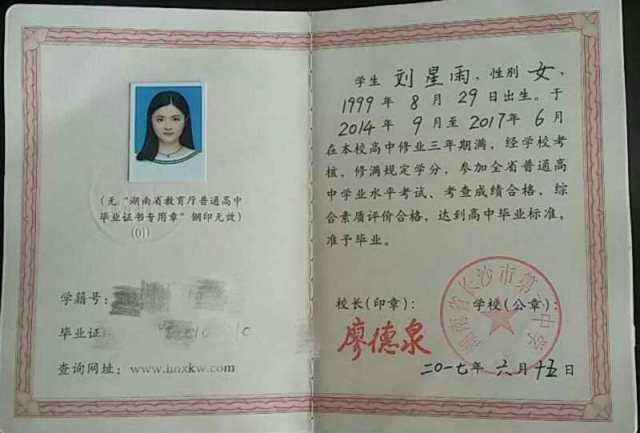 (无“湖南省教育厅普通高中
毕业证书专用章”钢印无效)
(01)
学籍号:
毕业证
查询网址: www.hnxkw.com
学生 刘星雨, 性别 女,
1999 年 8 月 29 日出生。于
2014 年 9 月至 2017 年 6 月
在本校高中修业三年期满, 经学校考
核, 修满规定学分, 参加全省普通高
中学业水平考试、考查成绩合格, 综
合素质评价合格, 达到高中毕业标准,
准予毕业。
校长(印章): 学校(公章):
廖德泉
湖南省长沙市第一中学
二〇一七年 六 月 十五 日